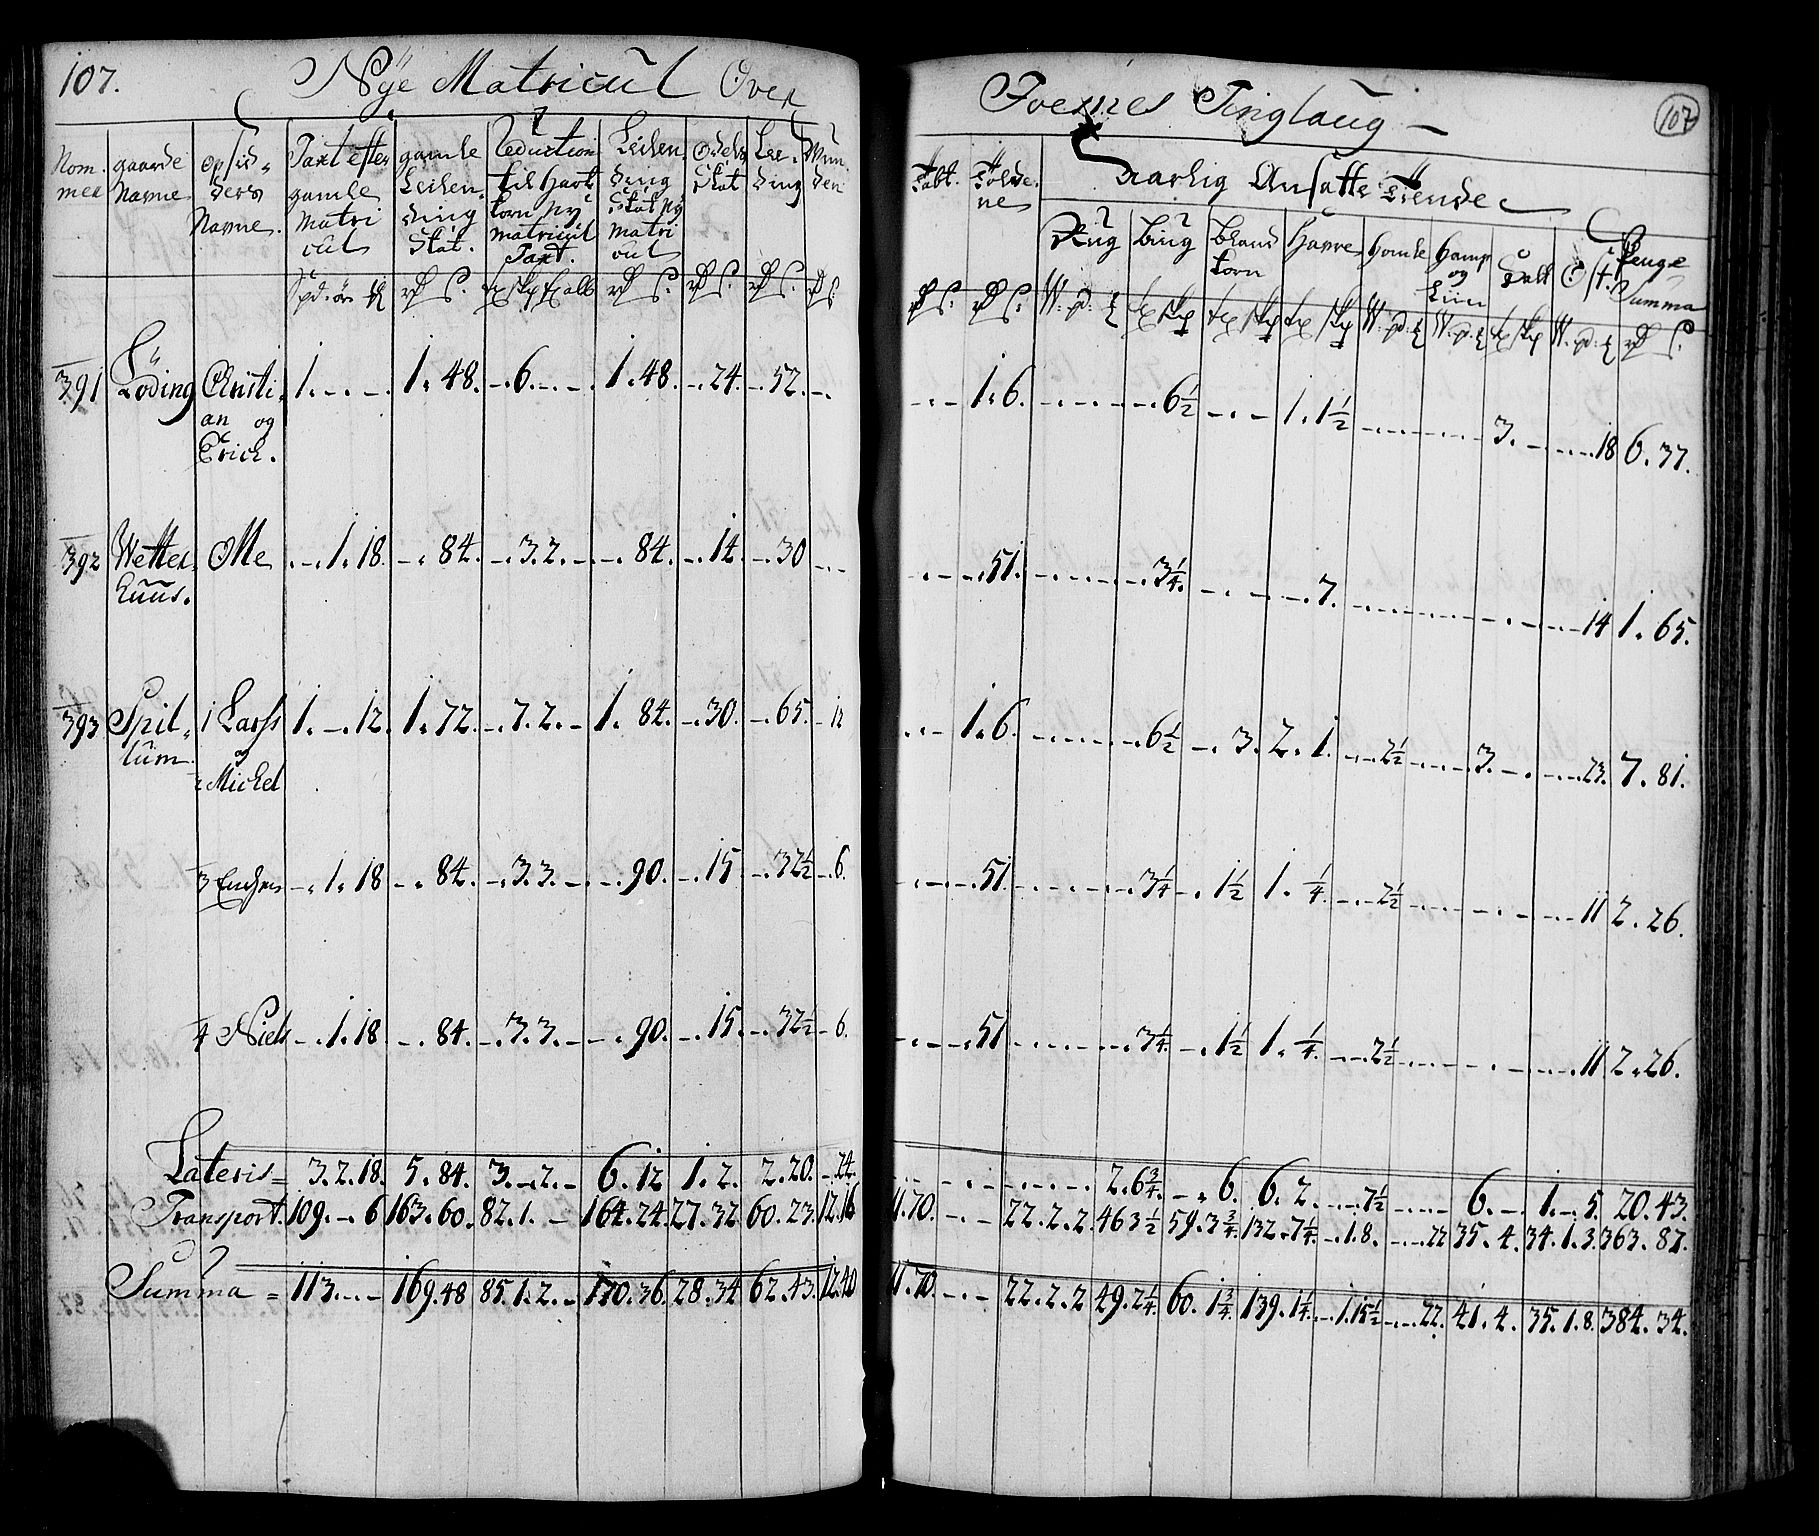 107. Nÿe Matricul Over
Nom. mer | gaarde Navne | opsid- ders Navne. | Taxt efter gamle Matri cul | gamle Leilen- ding Skat. | Reduction til Hart korn ny matricul Taxt. | Leilen ding Skat ny matri cul | Odels Skat | Lee- ding | Mun den
391 | Löding | Christi- an og Erich. | 1. - . - | 1. 48. | - . 6. - . - | 1. 48. | - . 24. | - . 52. | - .
392 | Wetter- huus. | Olle | - . 1. 18. | - . 84. | - . 3. 2. - | - . 84. | - . 14. | - . 30 | - . -
393 | Spil- lum | 1 Larss og 2 Michel | 1. - . 12. | 1. 72. | - . 7. 2. - | 1. 84. | - . 30. | - . 65. | - 12
3 | - . 1. 18 | - . 84. | - . 3. 3. - | - . 90. | - . 15 | - . 32½ | - . 6.
4 Niels | - . 1. 18 | - . 84. | - . 3. 3. - | - . 90. | - . 15. | - . 32½ | - 6.
Lateris = 3. 2. 18. | 5. 84. | 3. - . 2. - | 6. 12 | 1. 2. | 2. 20. | - 24.
Transport. 109. - . 6 | 163. 60. | 82. 1. - | 164. 24. | 27. 32 | 60. 23. | 12. 16
Summa = 113. - . - | 169. 48 | 85. 1. 2. - | 170. 36. | 28. 34 | 62. 43. | 12. 40
Foesnes Tinglaug - 107
Tabt. | Følde- ne | Aarlig Ansatte Tiende
Rug | Bÿg | Bland korn | Havre | Homle | Hamp og Liin | Salt | Ost. | Penge Summa
- . - | 1. 6. | - . - . - | - . 6½ | - . - | 1. 1½ | - . - . - . - | 3. - . - . - . 18 | 6. 37.
- . - | - . 51. | - . - . - | - . 3¼. | - . - | - . 7. | - . - . - . - . - . - 14 | 1. 65.
- . - | 1. 6. | - . - . - | - . 6½ | - . 3. | 2. 1. | - . - 2½ | - . - . - | 3. - . | - . - . 23. | 7. 81.
- . - | - . 51. | - . - . - | - . 3¼ | - . 1½ | 1. ¼. | - . - 2½ | - . - . - . - . - . 11 | 2. 26.
- . - | - . 51 | - . - . - | - . 3¼. | - . 1½ | 1. ¼. | - . - 2½ | - . - . - . - . - . 11 | 2. 26.
- . - . - | - . - . - | 2. 6¾. | - . 6. | 6. 2. | - . - 7½ | - . - . - | 6. - . | 1. - . 5. | 20. 43.
11. 70. | - . - | 22. 2. 2. | 46 3½ | 59. 3¾. | 132. 7¼. | - . 1. 8. | - . - . 22 | 35. 4. | 34. 1. 3. | 363. 87.
11. 70. | - . - | 22. 2. 2 | 49. 2¼. | 60. 1¾. | 139. 1¼. | - . 1. 15½ | - . - . 22. | 41. 4. | 35. 1. 8. | 384. 34.